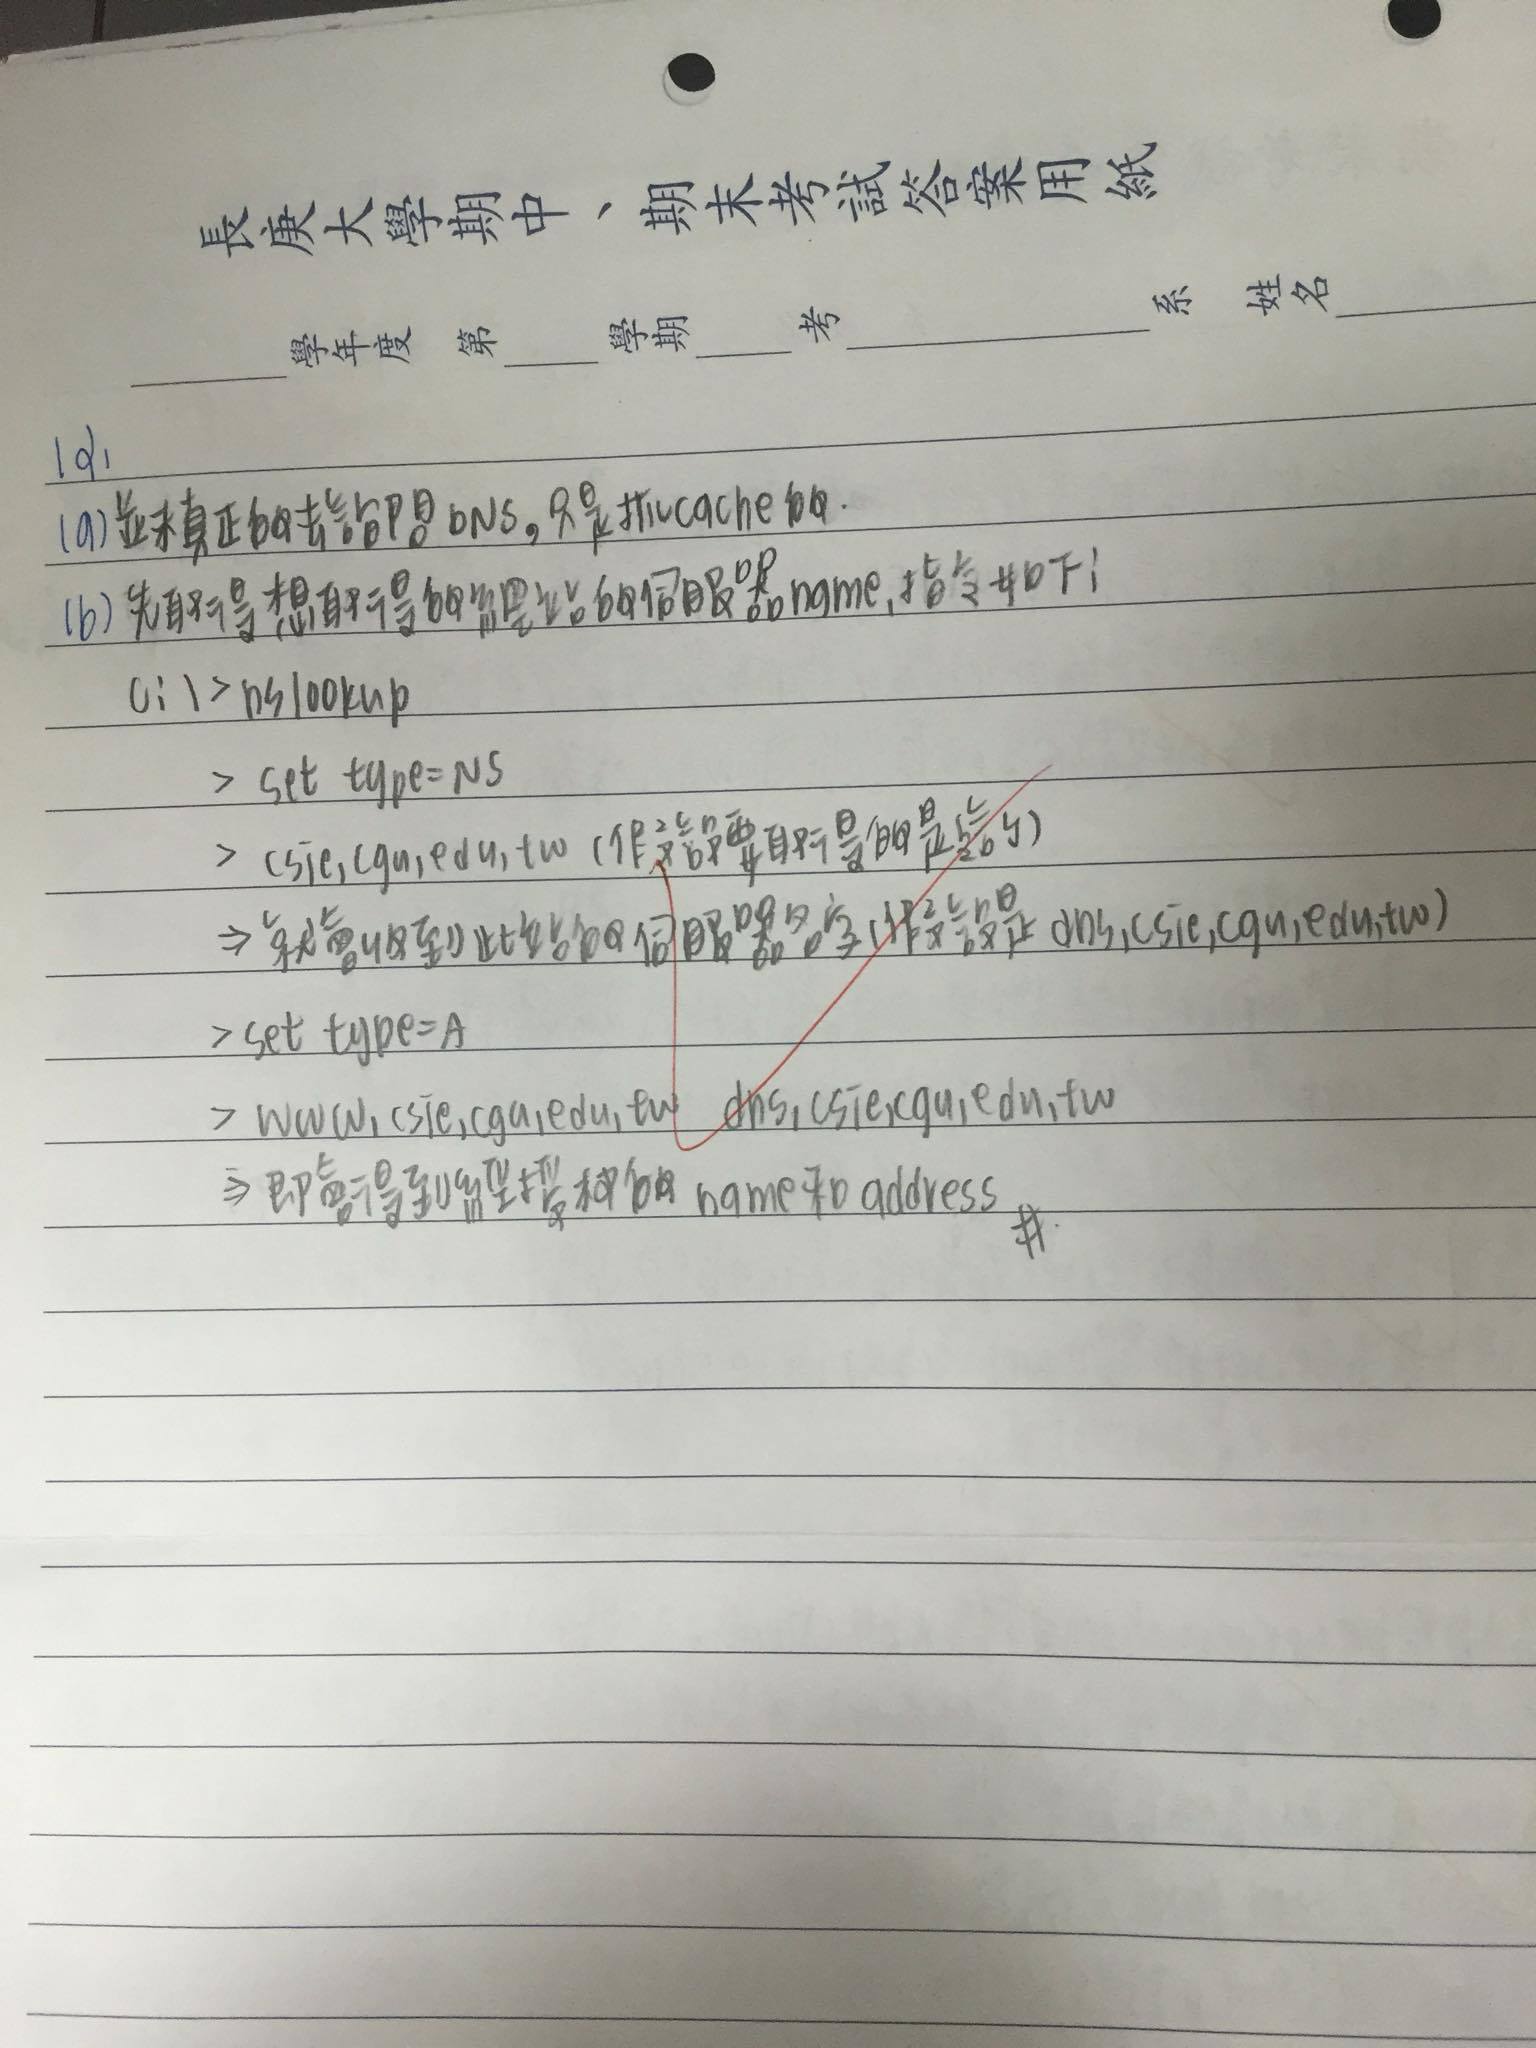 長庚大學期中、期末考試答案用紙
學年度 第 學期 考 系 姓名
1d.
(a) 並未真正的去詢問DNS。只是抓cache的.
(b) 先取得想取得的網站的伺服器name,指令如下:
C:\>nslookup
> set type=NS
> csie.cgu.edu.tw (假設要取得的是這ㄍ)
⇒ 就會收到此站的伺服器名字(假設是 dns.csie.cgu.edu.tw)
> set type=A
> www.csie.cgu.edu.tw dns.csie.cgu.edu.tw
⇒ 即會得到 的 name和address #